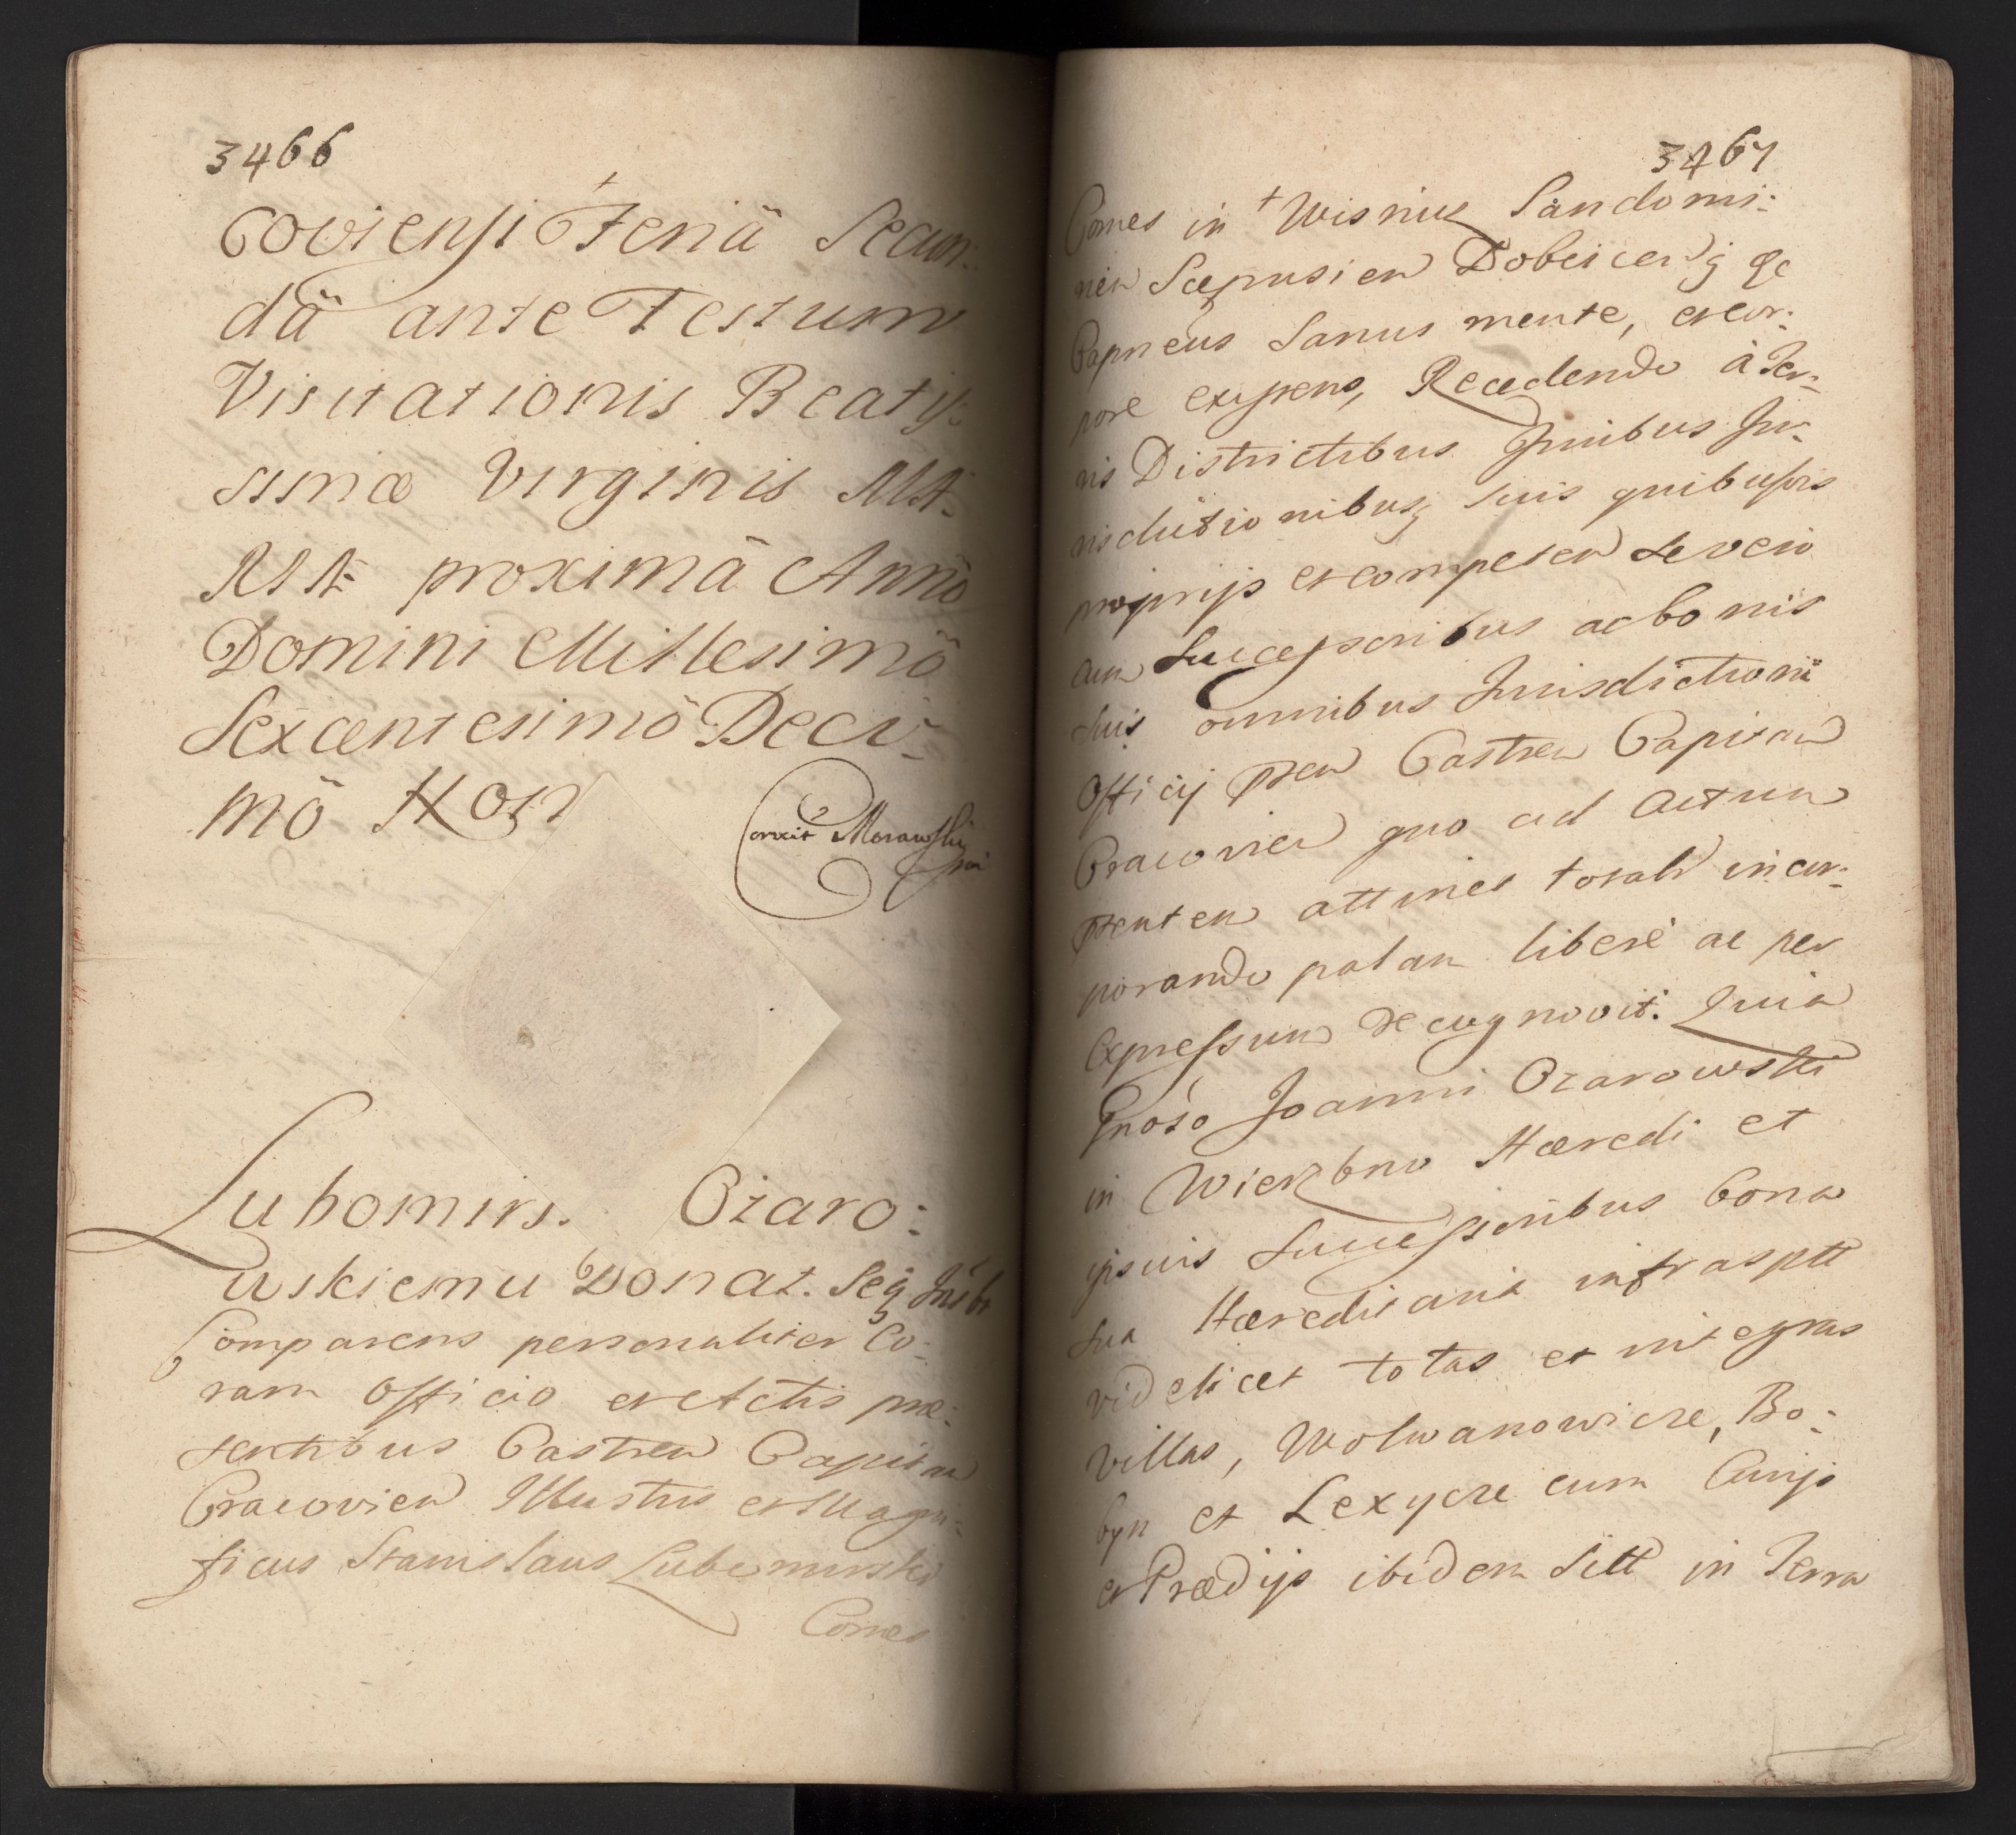 3466
coviensi Feriâ Secun:
dâ ante Festum
Visitationis Beatis:
simæ Virginis MA:
RIÆ proximâ Annô
Domini Millesimô
Sexcentesimô Deci:
mô Non
Correxit Morawski
mp
Lubomirs. Ozaro:
wskiemu Donat.
Comparens personaliter Co:
ram Officio et Actis præ:
sentibus Castren Capitan
Cracovien Illustris et Magni:
ficus Stanislaus Lubomirski
Comes
3467
Comes in Wisnicz Sandomi:
rien Scæpusien Dobcicen &c
Capneus Sanus mente, et cor:
pore existens, Recedendo à Ter:
ris Districtibus Juribus Ju:
risdictionibusq suis quibusvis
proprijs et competen se vero
cum Successoribus ac bonis
suis omnibus Jurisdictioni
Officij pten Castren Capitan
Cracovien quo ad actum
ptentem attinet totalr incor:
porando palam liberè ac per
Expressum Recognovit: Quia
Gnoso Joanni Ozarowski
in Wierzbno Hæredi et
ipsius Successoribus bona
sua Hæreditaria infrasptt
videlicet totas et integras
Villas, Wolwanowicze, Bo:
byn et Lexycze cum Curijs
et Prædijs ibidem Sitt in Terra